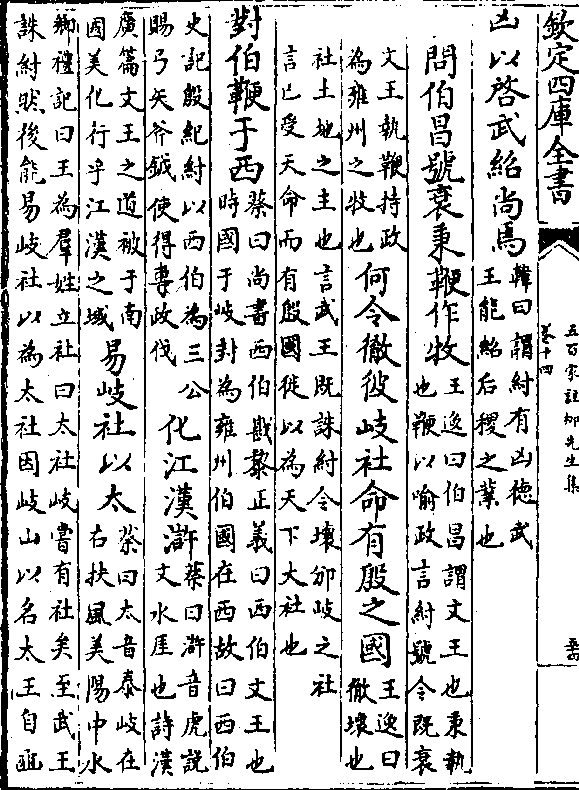 欽定四庫全書
五百家註柳先生集
卷十四
凶以啓武紹尚焉
韓曰謂紂有凶德武
王能紹后稷之業也
問伯昌號衰秉鞭作牧
王逸曰伯昌謂文王也秉執
也鞭以喻政言紂號令既衰
文王執鞭持政
為雍州之牧也
何令徹彼岐社命有殷之國
王逸曰
徹壞也
社土地之主也言武王既誅紂令壞邠岐之社
言已受天命而有殷國徙以為天下大社也
對伯鞭于西
蔡曰尚書西伯戡黎正義曰西伯文王也
時國于岐封為雍州伯國在西故曰西伯
史記殷紀紂以西伯為三公
賜弓矢斧鉞使得專政伐
化江漢滸
蔡曰滸音虎說
文水厓也詩漢
廣篇文王之道被于南
因美化行乎江漢之域
易岐社以太
蔡曰太音泰岐在
右扶風美陽中水
鄉禮記曰王為羣姓立社曰太社岐嘗有社矣至武王
誅紂然後能易岐社以為太社因岐山以名太王自豳